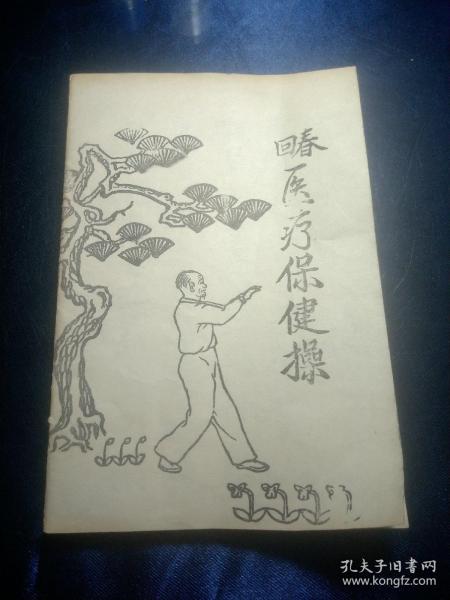 回春医疗保健操
孔夫子旧书网
www.kongfz.com